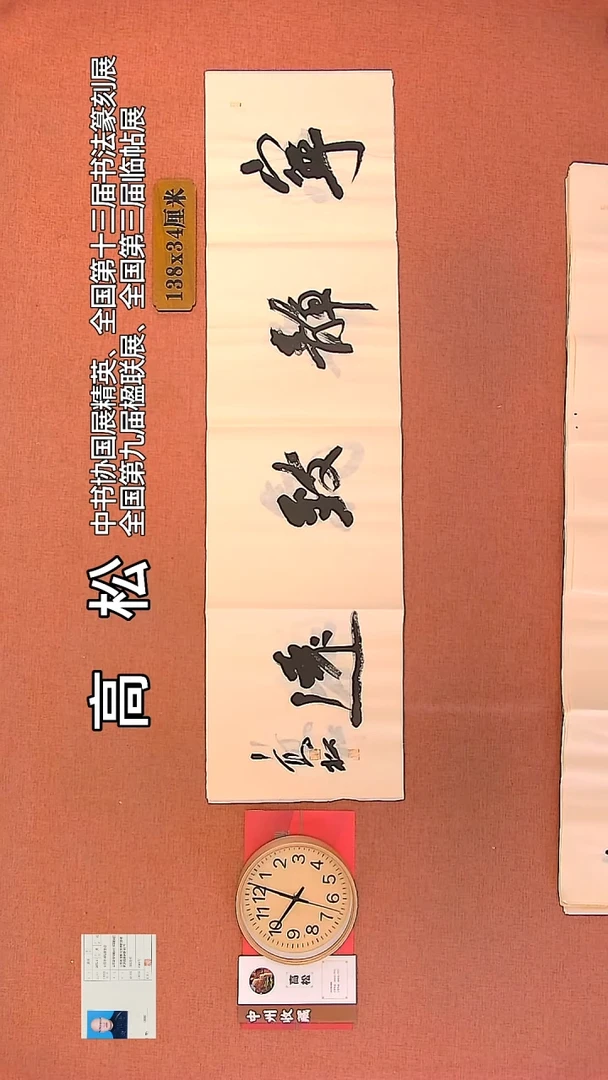 高 松
中书协国展精英、全国第十三届书法篆刻展
全国第九届楹联展、全国第三届临帖展
138x34厘米
寧靜致遠
高松
12
1
2
3
4
5
6
7
8
9
10
11
高松
中州收藏